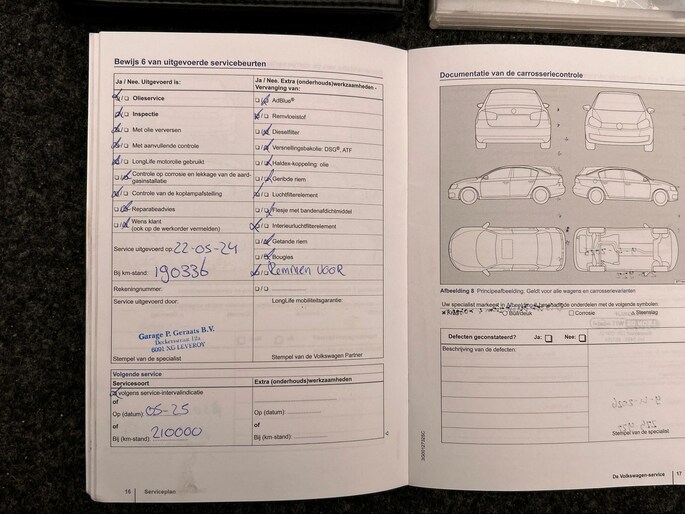 Bewijs 6 van uitgevoerde servicebeurten
Ja / Nee. Uitgevoerd is:
Olieservice
Inspectie
Met olie verversen
Met aanvullende controle
LongLife motorolie gebruikt
Controle op corrosie en lekkage van de aard-
gasinstallatie
Controle van de koplampafstelling
Reparatieadvies
Wens klant
(ook op de werkorder vermelden)
Service uitgevoerd op 22-05-24
Bij km-stand: 190336
Rekeningnummer:
Service uitgevoerd door:
Garage P. Geraais B.V.
0001 XG LEVEROY
Stempel van de specialist
Ja / Nee. Extra (onderhouds)werkzaamheden -
Vervanging van:
AdBlue®
Remvloeistof
Dieselfilter
Versnellingsbakolie: DSG®, ATF
Haldex-koppeling: olie
Geribde riem
Luchtfilterelement
Flesje met bandenafdichtmiddel
Interieurluchtfilterelement
Getande riem
Bougies
Remmen voor
LongLife mobiliteitsgarantie:
Stempel van de Volkswagen Partner
Volgende service
Servicesoort
volgens service-intervalindicatie
of
Op (datum): 05-25
of
Bij (km-stand): 210000
Extra (onderhouds)werkzaamheden
Op (datum):
of
Bij (km-stand):
16 Serviceplan
Documentatie van de carrosseriecontrole
Afbeelding 8 Principeafbeelding. Geldt voor alle wagens en carrosserievarianten
Uw specialist markeert in Afbeelding 8 beschadigde onderdelen met de volgende symbolen:
Kras Buil/deuk Corrosie Steenslag
Defecten geconstateerd? Ja: Nee:
Beschrijving van de defecten:
Stempel van de specialist
De Volkswagen-service 17